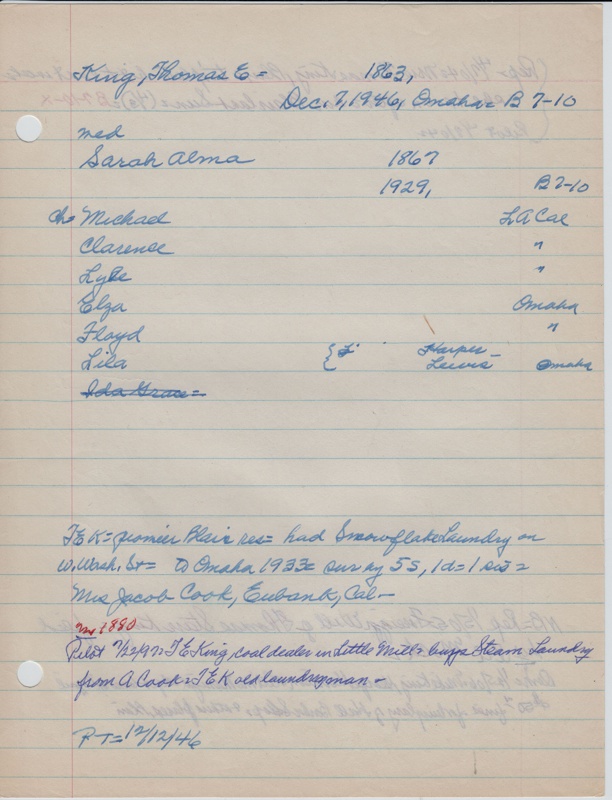 King, Thomas E = 1863,
Dec. 7, 1946, Omaha = B 7-10
med
Sarah Alma 1867
1929, B 7-10
ch = Michael LA Cal
Clarence "
Lyle "
Elza Omaha
Floyd "
Lila { Harper -
Lewis Omaha
Ida Grace =
TEK = pionier Blair res = had Snowflake Laundry on
W. Wash. St = to Omaha 1933 = sur by 5s, 1d = 1 sis =
Mrs Jacob Cook, Eubank, Cal -
1880
Pilot 7/22/97 = TE King, coal dealer in Little Mill = buys Steam Laundry
from A Cook = TEK old laundryman -
PT = 12/12/46